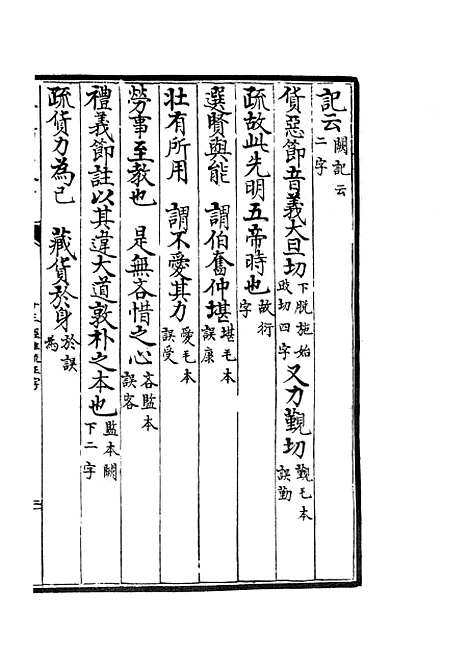 記云闕記云二字
貨惡節音義大旦切下脫施始豉切四字又力覲切覲毛本誤勤
疏故此先明五帝時也故衍字
選賢與能　謂伯奮仲堪堪毛本誤康
壯有所用　謂不愛其力愛毛本誤受
勞事至教也　是無吝惜之心吝監本誤客
禮義節註以其違大道敦朴之本也監本闕下二字
疏貨力為己　藏貨於身於誤為